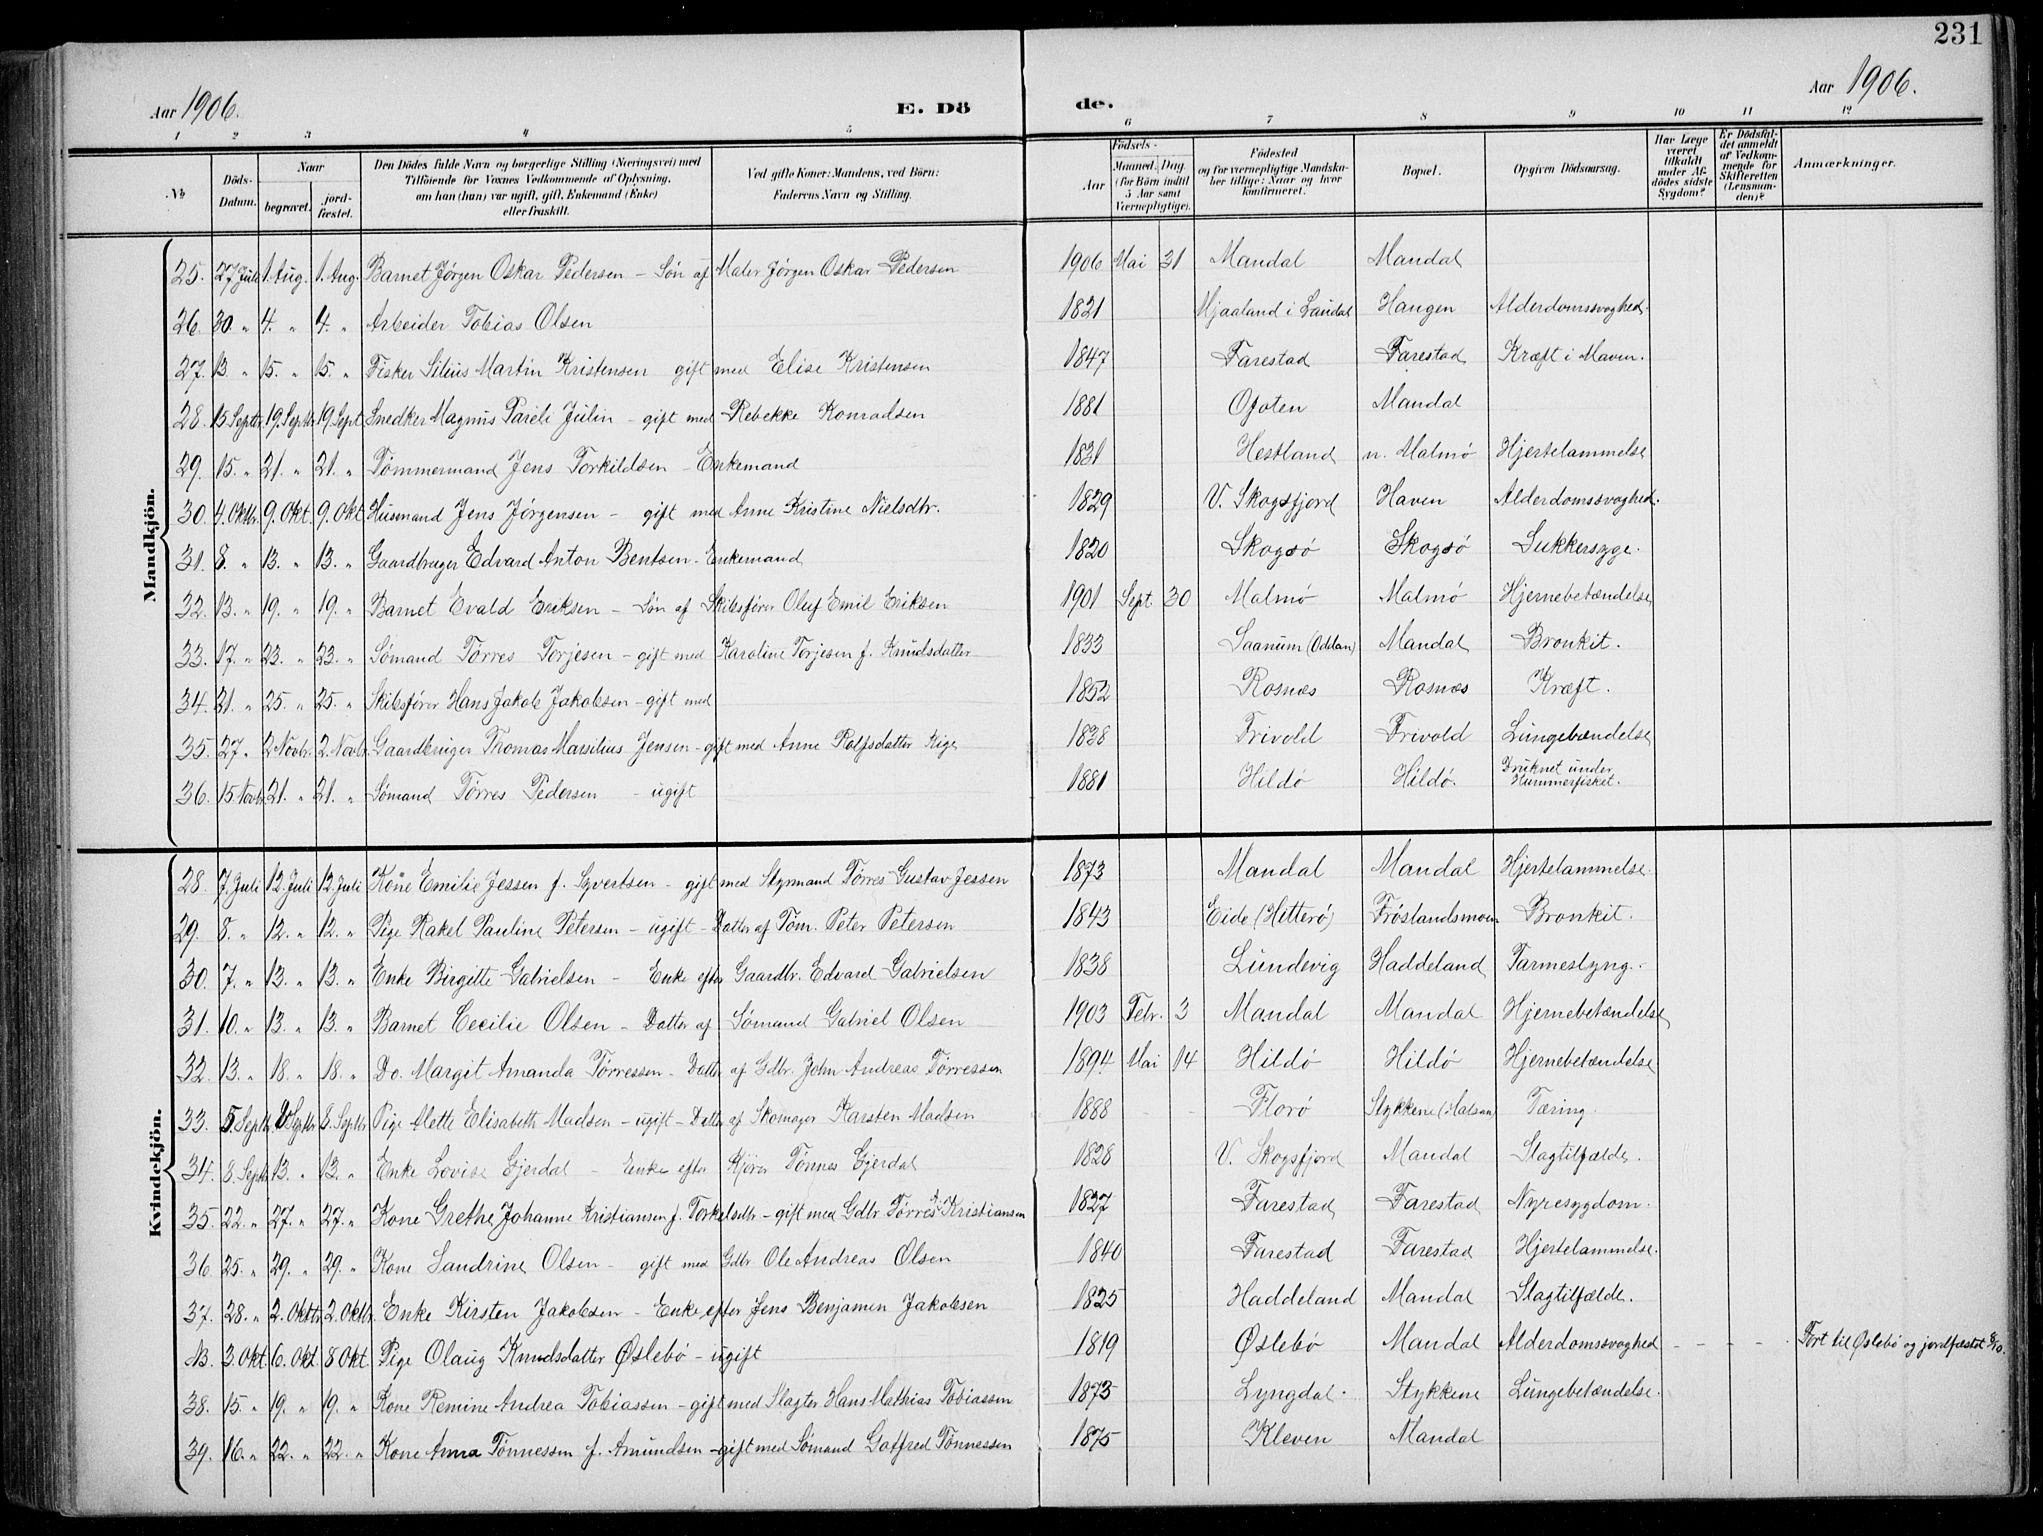 231
Aar 1906.
E. Dö
de.
Aar 1906.
1 2 3 4 5 6 7 8 9 10 11 12
№
Döds-Datum.
Naar
begravet.
jord-fæstet.
Den Dödes fulde Navn og borgerlige Stilling (Næringsvei) med
Tilföiende for Voxnes Vedkommende af Oplysning,
om han (hun) var ugift, gift, Enkemand (Enke)
eller fraskilt.
Ved gifte Koner: Mandens, ved Börn:
Faderens Navn og Stilling.
Födsels-
Aar
Maaned. Dag
(for Börn indtil
5 Aar samt
Værnepligtige).
Födested
og for værnepligtige Mandska-
ber tillige: Naar og hvor
konfirmeret.
Bopæl.
Opgiven Dödsaarsag.
Har Læge
været
tilkaldt
under Af-
dödes sidste
Sygdom?
Er Dödsfal-
det anmeldt
af Vedkom-
mende for
Skifteretten
(Lensman-
den)?
Anmærkninger.
Mandkjön.
25. 27 Juli 1. Aug. 1. Aug. Barnet Jørgen Oskar Pedersen - Søn af Maler Jørgen Oskar Pedersen 1906 Mai 31 Mandal Mandal
26. 30. " 4. " 4. " Arbeider Tobias Olsen 1821 Mjaaland i Laudal Haugen Alderdomssvaghed.
27. 13. " 15. " 15. " Fisker Silius Martin Kristensen gift med Elise Kristensen 1847 Farestad Farestad Kræft i Maven.
28. 15. Septbr. 19. Septbr. 19. Sept. Snedker Magnus Pareli Julin - gift med Rebekke Konradsen 1881 Ofoten Mandal
29. 15. " 21. " 21. " Tømmermand Jens Torkildsen - Enkemand 1821 Hestland n. Malmø Hjertelammelse
30. 4. Oktbr. 9. Okt. 9. Okt. Husmand Jens Jørgensen - gift med Anne Kristine Nielsdtr. 1829 V. Skogsfjord Haven Alderdomssvaghed.
31. 8. " 13. " 13. " Gaardbruger Edvard Anton Bentsen. Enkemand 1820 Skogsø Skogsø Sukkersyge.
32. 13. " 19. " 19. " Barnet Evald Eriksen - Søn af Skibsfører Oluf Emil Eriksen 1901 Sept. 30 Malmø Malmø Hjernebetændelse
33. 17. " 23. " 23. " Sømand Tørres Torjesen - gift med Karoline Torjesen f. Knudsdatter 1833 Saanum (Oddan) Mandal Bronkit.
34. 21. " 25. " 25. " Skibsfører Hans Jakob Jakobsen - gift med 1852 Rosnæs Rosnæs Kræft.
35. 27. " 2 Novbr. 2. Novbr. Gaardbruger Thomas Marsilius Jensen - gift med Anne Rolfsdatter Rige 1838 Frivold Frivold Lungebændelse
36. 15. Novbr. 21. " 21. " Sømand Tørres Pedersen - ugift 1881 Hildø Hildø. Druknet under Hummerfisket.
Kvindekjön.
28. 7. Juli 12. Juli 12. Juli Kone Emilie Jessen f. Syvertsen - gift med Styrmand Tørres Gustav Jessen 1873 Mandal Mandal Hjertelammelse.
29. 8. " 12. " 12. " Pige Rakel Pauline Petersen - ugift - Datter af Tøm. Peter Petersen 1843 Eide (Hitterø) Frøslandsmoen Bronkit.
30. 7. " 13. " 13. " Enke Birgitte Gabrielsen - Enke efter Gaardbr. Edvard Gabrielsen 1838 Lundevig Haddeland Tarmeslyng.
31. 10. " 13. " 13. " Barnet Cecilie Olsen - Datter af Sømand Gabriel Olsen 1903 Febr. 3 Mandal Mandal Hjernebetændelse
32. 13. " 18. " 18. " Do. Margit Amanda Tørressen - Datter af Gdbr. John Andreas Tørressen 1894 Mai 14 Hildø Hildø Hjernebetændelse
33. 5. Septbr. 8 Septbr 8. Septbr. Pige Mette Elisabeth Madsen - ugift - Datter af Skomager Karsten Madsen 1888 Florø Stykkene (Halsaa) Tæring.
34. 8. Septbr. 13. " 13. " Enke Lovise Gjerdal - Enke efter Kjører Tønnes Gjerdal 1828 V. Skogsfjord Mandal Slagtilfælde.
35. 22. " 27. " 27. " Kone Grethe Johanne Kristiansen f. Torkelsdtr. - gift med Gdbr. Tørres Kristiansen 1827 Farestad Farestad Nyresygdom.
36. 25. " 29. " 29. " Kone Sandrine Olsen - gift med Gdbr Ole Andreas Olsen 1840 Farestad Farestad Hjertelammelse.
37. 28. " 2. Oktbr. 2. Oktbr. Enke Kirsten Jakobsen - Enke efter Jens Benjamin Jakobsen 1825 Haddeland Mandal Slagtilfælde.
NB. 3. Okt. 6. Okt 8 Okt Pige Olaug Knudsdatter Øslebø - ugift 1819 Øslebø Mandal Alderdomssvaghed - - - Ført til Øslebø og jordfæstet 8/10.
38. 15. " 19. " 19. " Kone Remine Andrea Tobiassen - gift med Slagter Hans Mathias Tobiassen 1873 Lyngdal. Stykkene Lungebetændelse.
39. 16. " 22. " 22. " Kone Anna Tønnessen f. Amundsen - gift med Sømand Gotfred Tønnessen 1875 Kleven Mandal